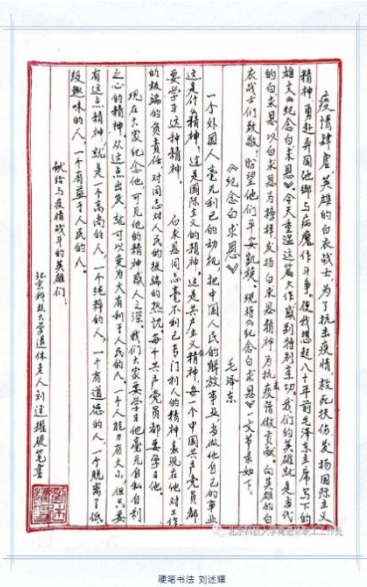 疫情肆虐英雄的白衣战士为了抗击疫情，救死扶伤发扬国际主义
精神勇赴异国他乡与病魔作斗争。使我想起八十年前毛泽东主席写下的
雄文《纪念白求恩》。今天重温这篇大作感到特别亲切，我们的英雄就是当代
的白求恩以白求恩为榜样，发扬白求恩精神为抗疫情做贡献。向英雄的白
衣战士们致敬！盼望他们平安凯旋。现将《纪念白求恩》一文节录如下。
《纪念白求恩》 毛泽东
一个外国人毫无利己的动机，把中国人民的解放事业，当做他自己的事业
这是什么精神，这是国际主义的精神，这是共产主义精神，每一个中国共产党员都
要学习这种精神。 白求恩同志毫不利己专门利人的精神，表现在他对工作
的极端的负责任，对同志对人民的极端的热忱，每个共产党员都要学习他。
现在大家纪念他，可见他的精神感人之深。我们大家要学习他毫无自私自利
之心的精神，从这点出发，就可以变为大有利于人民的人。一个人能力有大小，但只要
有这点精神，就是一个高尚的人，一个纯粹的人，一个有道德的人，一个脱离了低
级趣味的人，一个有益于人民的人。
献给与疫情战斗的英雄们。
北京科技大学退休老人刘述耀硬笔书
北京科技大学离退休职工工作处
硬笔书法 刘述耀